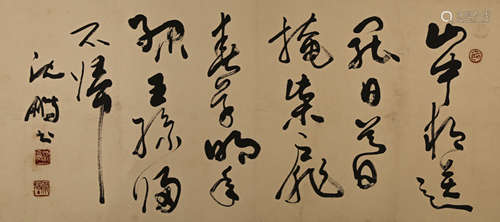 山中相送
罷日暮
掩柴扉
春草明年
綠王孫歸
不歸
沈鵬書